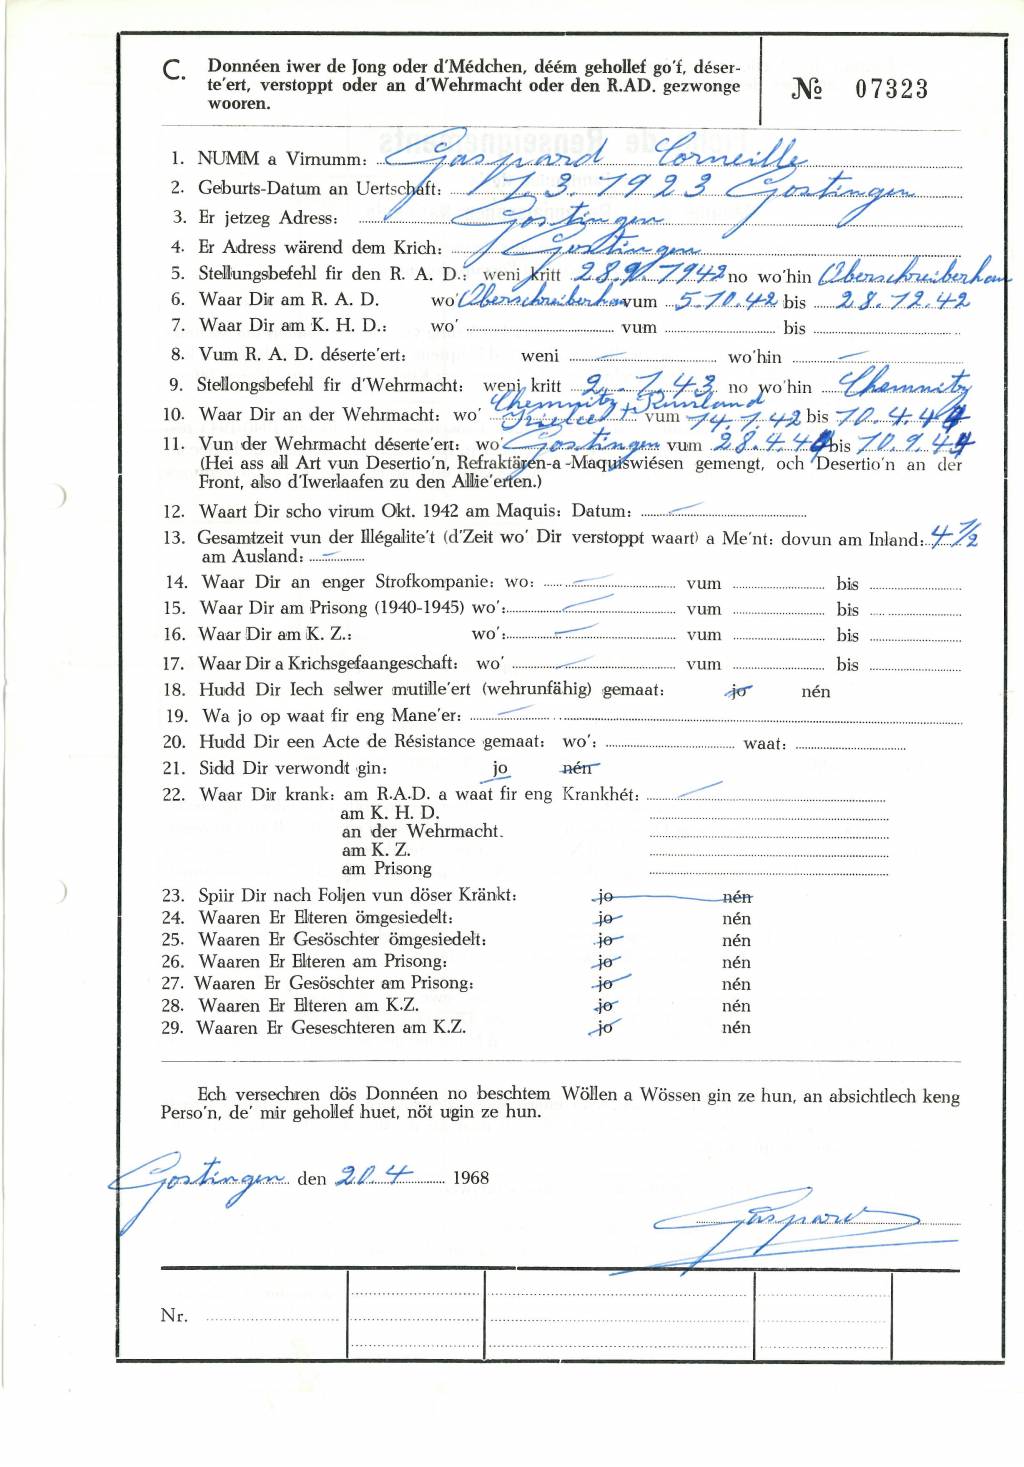 C. Donnéen iwer de Jong oder d'Médchen, déém gehollef go'f, déser-
te'ert, verstoppt oder an d'Wehrmacht oder den R.AD. gezwonge
wooren.
№ 07323
1. NUMM a Virnumm: Gaspard Corneille
2. Geburts-Datum an Uertschaft: 11.3.1923 Gostingen
3. Er jetzeg Adress: Gostingen
4. Er Adress wärend dem Krich: Gostingen
5. Stellungsbefehl fir den R. A. D.: weni kritt 28.9.1942 no wo'hin Oberschreiberhau
6. Waar Dir am R. A. D. wo' Oberschreiberhau vum 5.10.42 bis 28.12.42
7. Waar Dir am K. H. D.: wo' vum bis
8. Vum R. A. D. déserte'ert: weni — wo'hin —
9. Stellongsbefehl fir d'Wehrmacht: weni kritt 2.1.43 no wo'hin Chemnitz
Chemnitz
10. Waar Dir an der Wehrmacht: wo' Kielce + Russland vum 14.1.42 bis 10.4.44
11. Vun der Wehrmacht déserte'ert: wo' Gostingen vum 28.4.44 bis 10.9.44
(Hei ass all Art vun Desertio'n, Refraktären-a -Maquiswiésen gemengt, och Desertio'n an der
Front, also d'Iwerlaafen zu den Allie'erten.)
12. Waart Dir scho virum Okt. 1942 am Maquis: Datum: —
13. Gesamtzeit vun der Illégalite't (d'Zeit wo' Dir verstoppt waart) a Me'nt: dovun am Inland: 4 1/2
am Ausland: —
14. Waar Dir an enger Strofkompanie: wo: — vum bis
15. Waar Dir am Prisong (1940-1945) wo': — vum bis
16. Waar Dir am K. Z.: wo': — vum bis
17. Waar Dir a Krichsgefaangeschaft: wo' — vum bis
18. Hudd Dir Iech selwer mutille'ert (wehrunfähig) gemaat: jo nén
19. Wa jo op waat fir eng Mane'er: —
20. Hudd Dir een Acte de Résistance gemaat: wo': waat:
21. Sidd Dir verwondt gin: jo nén
22. Waar Dir krank: am R.A.D. a waat fir eng Krankhét: —
am K. H. D.
an der Wehrmacht.
am K. Z.
am Prisong
23. Spiir Dir nach Foljen vun döser Kränkt: jo nén
24. Waaren Er Elteren ömgesiedelt: jo nén
25. Waaren Er Gesöschter ömgesiedelt: jo nén
26. Waaren Er Elteren am Prisong: jo nén
27. Waaren Er Gesöschter am Prisong: jo nén
28. Waaren Er Elteren am K.Z. jo nén
29. Waaren Er Geseschteren am K.Z. jo nén
Ech versechren dös Donnéen no beschtem Wöllen a Wössen gin ze hun, an absichtlech keng
Perso'n, de' mir gehollef huet, nöt ugin ze hun.
Gostingen den 20.4 1968
Gaspard
Nr.